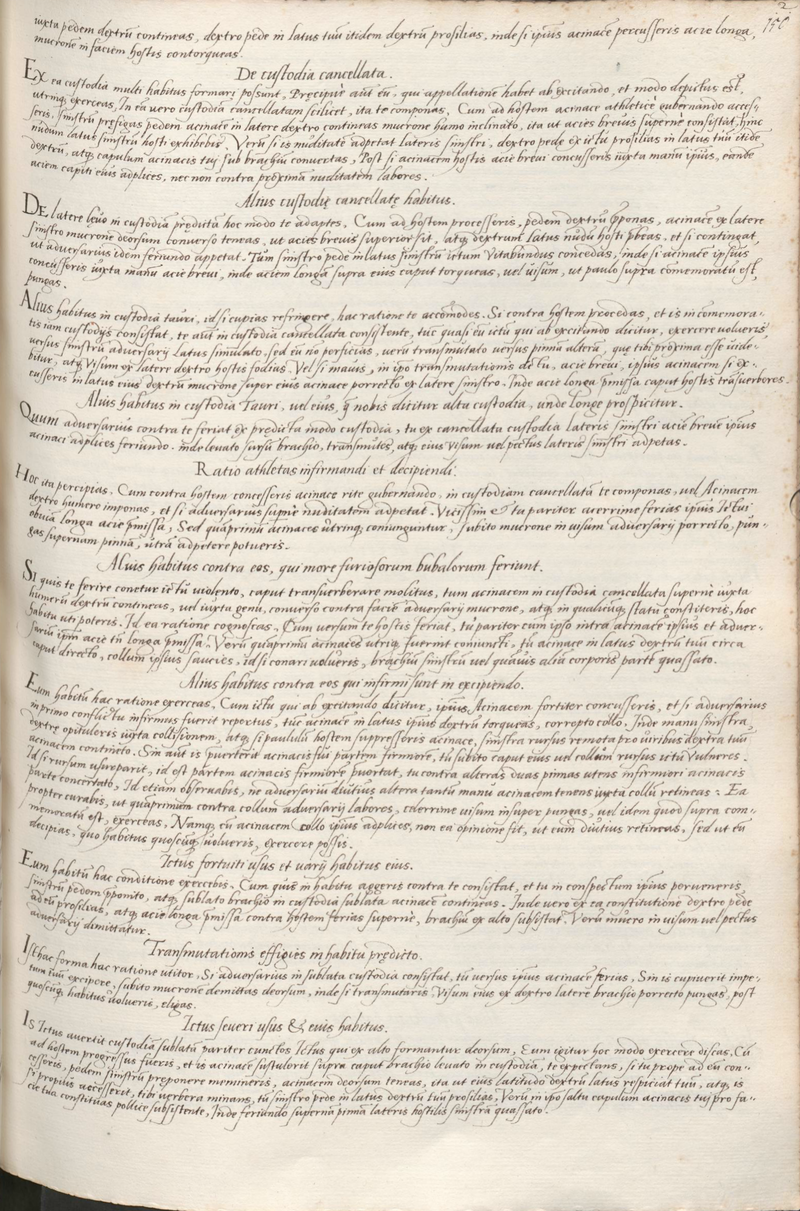 2
155
iuxta pedem dextrũ contineas, dextro pede in latus tuũ itidem dextrũ prosilias, inde si ipsius acinacẽ percusseris acie longa,
mucronẽ in faciem hostis contorqueas.
De custodia cancellata.
Ex ea custodia multi habitus formari possunt, Precipuè aut eũ, qui appellationẽ habet ab excitando, et modo depictus est,
utrinq exerceas, In eã uero custodiã cancellatam scilicet, ita te componas. Cum ad hostem acinace athleticè gubernando acces-
seris, sinistrũ prefigas pedem acinacẽ in latere dextro contineas mucrone humo inclinato, ita ut acies breuis supernè consistat, hinc
nudum latus sinistrũ hosti exhibebis. Verũ si is nuditatẽ adpetat lateris sinistri, dextro pede ex ictu prosilias in latus tuũ itidẽ
dextrũ, atq capulum acinacis tuj sub brachiũ conuertas, Post si acinacem hostis acie breui concusseris iuxta manũ ipsius, eandẽ
aciem capiti eius adplices, nec non contra proximã nuditatem labores.
Alius custodiẽ cancellatẽ habitus.
De latere leuo in custodia predicta hoc modo te adaptes, Cum ad hostem processeris, pedem dextrũ pponas, acinacẽ ex latere
sinistro mucrone deorsum conuerso teneas, ut acies breuis superior sit, atq dextrum latus nudũ hosti pbeas, et si contingat,
ut aduersarius idem feriundo appetat. Tum sinistro pede in latus sinistrũ ictum uitabundus concedas, inde si acinacẽ ipsius
concusseris iuxta manũ acie breui, inde aciem longã supra eius caput torqueas, uel uisum, ut paulo supra comemoratũ est,
pungas.
Alius habitus in custodia tauri, id si cupias refringere, hac ratione te accomodes. Si contra hostem procedas, et is in comemora-
tis iam custodijs consistat, te aut in custodia cancellata consistente, tuc quasi eũ ictũ qui ab excitando dicitur, exercere uolueris
uersus sinistrũ aduersarij latus simulato, sed eũ nõ perficias, uerũ transmutato uersus pinnã alterã, que tibi proxima esse uide-
bitur, atq uisum ex latere dextro hostis fodias. Vel si mauis, in ipo transmutationis actu, acie breui, ipsius acinacem si ex-
cusseris in latus eius dextrũ mucronẽ super eius acinacẽ porrecto ex latere sinistro. Inde acie longa pmissa caput hostis trãsuerberes.
Alius habitus in custodia Tauri, uel eius, q nobis dicitur alta custodia, unde longè prospicitur.
Quum aduersarius contra te feriat ex predicta modo custodia, tu ex cancellata custodia lateris sinistri aciẽ breuẽ ipsius
acinaci adplices feriundo. inde leuato sursũ brachio, transmutes, atq eius uisum uel pectus lateris sinistri adpetas.
Ratio athletas infirmandi et decipiendi.
Hoc ita percipias. Cum contra hostem concesseris acinace rite gubernando, in custodiam cancellatã te componas, uel Acinacem
dextro humero imponas, et si aduersarius supnè nuditatem adpetat. Vicissim & tu pariter acerrimè ferias ipsius Ictui
obuia longa acie pmissa, Sed quãprimũ acinaces utrinq coniunguntur, subito mucrone in uisum aduersarij porrecto, pun-
gas supernam pinnã, ut rã adpetere potueris.
Alius habitus contra eos, qui more furiosorum bubalorum feriunt.
Si quis te ferire conetur ictu uiolento, caput transuerberare molitus, tum acinacem in custodia cancellata supernè iuxta
humerũ dextrũ contineas, uel iuxta genu, conuerso contra faciẽ aduersarij mucrone, atq in qualicunq statu constiteris, hoc
habitu uti poteris. Id ea ratione cognoscas. Cum uersum te hostis feriat, tu pariter cum ipso intra acinacẽ ipsius et aduer-
sariũ ipm aciẽ tũ longa pmissa. Verũ quãprimũ acinaces utriq fuerint coniuncti, tu acinacẽ in latus dextrũ tuũ circa
caput directo, collum ipsius saucies, id si conari uolueris, brachiũ sinistrũ uel quãuis alia corporis partẽ quassato.
Alius habitus contra eos qui infirmi sunt in excipiendo.
Eum habitũ hac ratione exerceas. Cum ictu qui ab excitando dicitur, ipsius Acinacem fortiter concusseris, et si aduersarius
in primo conflictu infirmus fuerit repertus, tuc acinacẽ in latus ipsius dextrũ torqueas, correpto collo. Inde manu sinistra
dextrẽ opituleris iuxta collisionem, atq si paululũ hostem suppresseris acinace, sinistra rursus remota pro uiribus dextra tuũ
acinacem contineto. Sin aut is puerterit acinacis sui partem firmiorẽ, tu subito caput eius uel collum rursus ictu Vulneres.
Id si rursum usurparit, id est partem acinacis firmiorẽ puertat, tu contra alteras duas pinnas utens infirmiori acinacis
parte concertato, Id etiam obseruabis, ne aduersariũ diutius altera tantũ manu acinacem tenens iuxta collũ retineas. Ea
propter curabis, ut quãprimum contra collum aduersarij labores, celerrimè uisum insuper pungas, uel idem quod supra com-
memoratũ est, exerceas, Namq cũ acinacem collo ipsius adplices, non ea opinione fit, ut eum diutius retineas, sed ut eũ
decipias, quo habitus quoscũq uolueris, exercere possis.
Ictus fortuiti usus et uarij habitus eius.
Eum habitũ hac conditione exercebis. Cum quis in habitu aggeris contra te consistat, et tu in conspectum ipsius perueneris
sinistrũ pedem pponito, atq sublato brachio in custodia sublata acinacẽ contineas. Inde uero ex ea constitutione dextro pede
ad eũ prosilias, atq acie longa pmissa contra hostem ferias supernè, brachiũ ex alto subsistat. Verũ mucro in uisum uel pectus
aduersarij demittatur.
Transmutationis effigies in habitu predicto.
Isthac forma hac ratione utitor, Si aduersarius in sublata custodia consistat, tu uersus ipsius acinacẽ ferias, Sin is cupiuerit impe-
tum tuũ excipere, subito mucronẽ demittas deorsum, inde si transmutaris. Visum eius ex dextro latere brachio porrecto pungas, post
quoscũq habitus uolueris, eligas.
Ictus seueri usus & eius habitus.
Is Ictus auertit custodiã sublatã pariter cunctos Ictus qui ex alto formantur deorsum, Eum igitur hoc modo exercere discas, Cũ
ad hostem progressus fueris, et is acinacẽ sustulerit supra caput brachio leuato in custodia, te expectans, si tu prope ad eũ con-
cesseris, pedem sinistrũ preponere memineris, acinacem deorsum teneas, ita ut eius latitudo dextrũ latus respiciat tuũ, atq is
si propius accesserit, tibi uerbera minans, tũ sinistro pede in latus dextrũ tuũ prosilias, Verũ in ipo saltu capulum acinacis tuj pro fa-
cie tua constituas pollice subsistente, Inde feriundo supernã pinnã lateris hostilis sinistrã quassato.